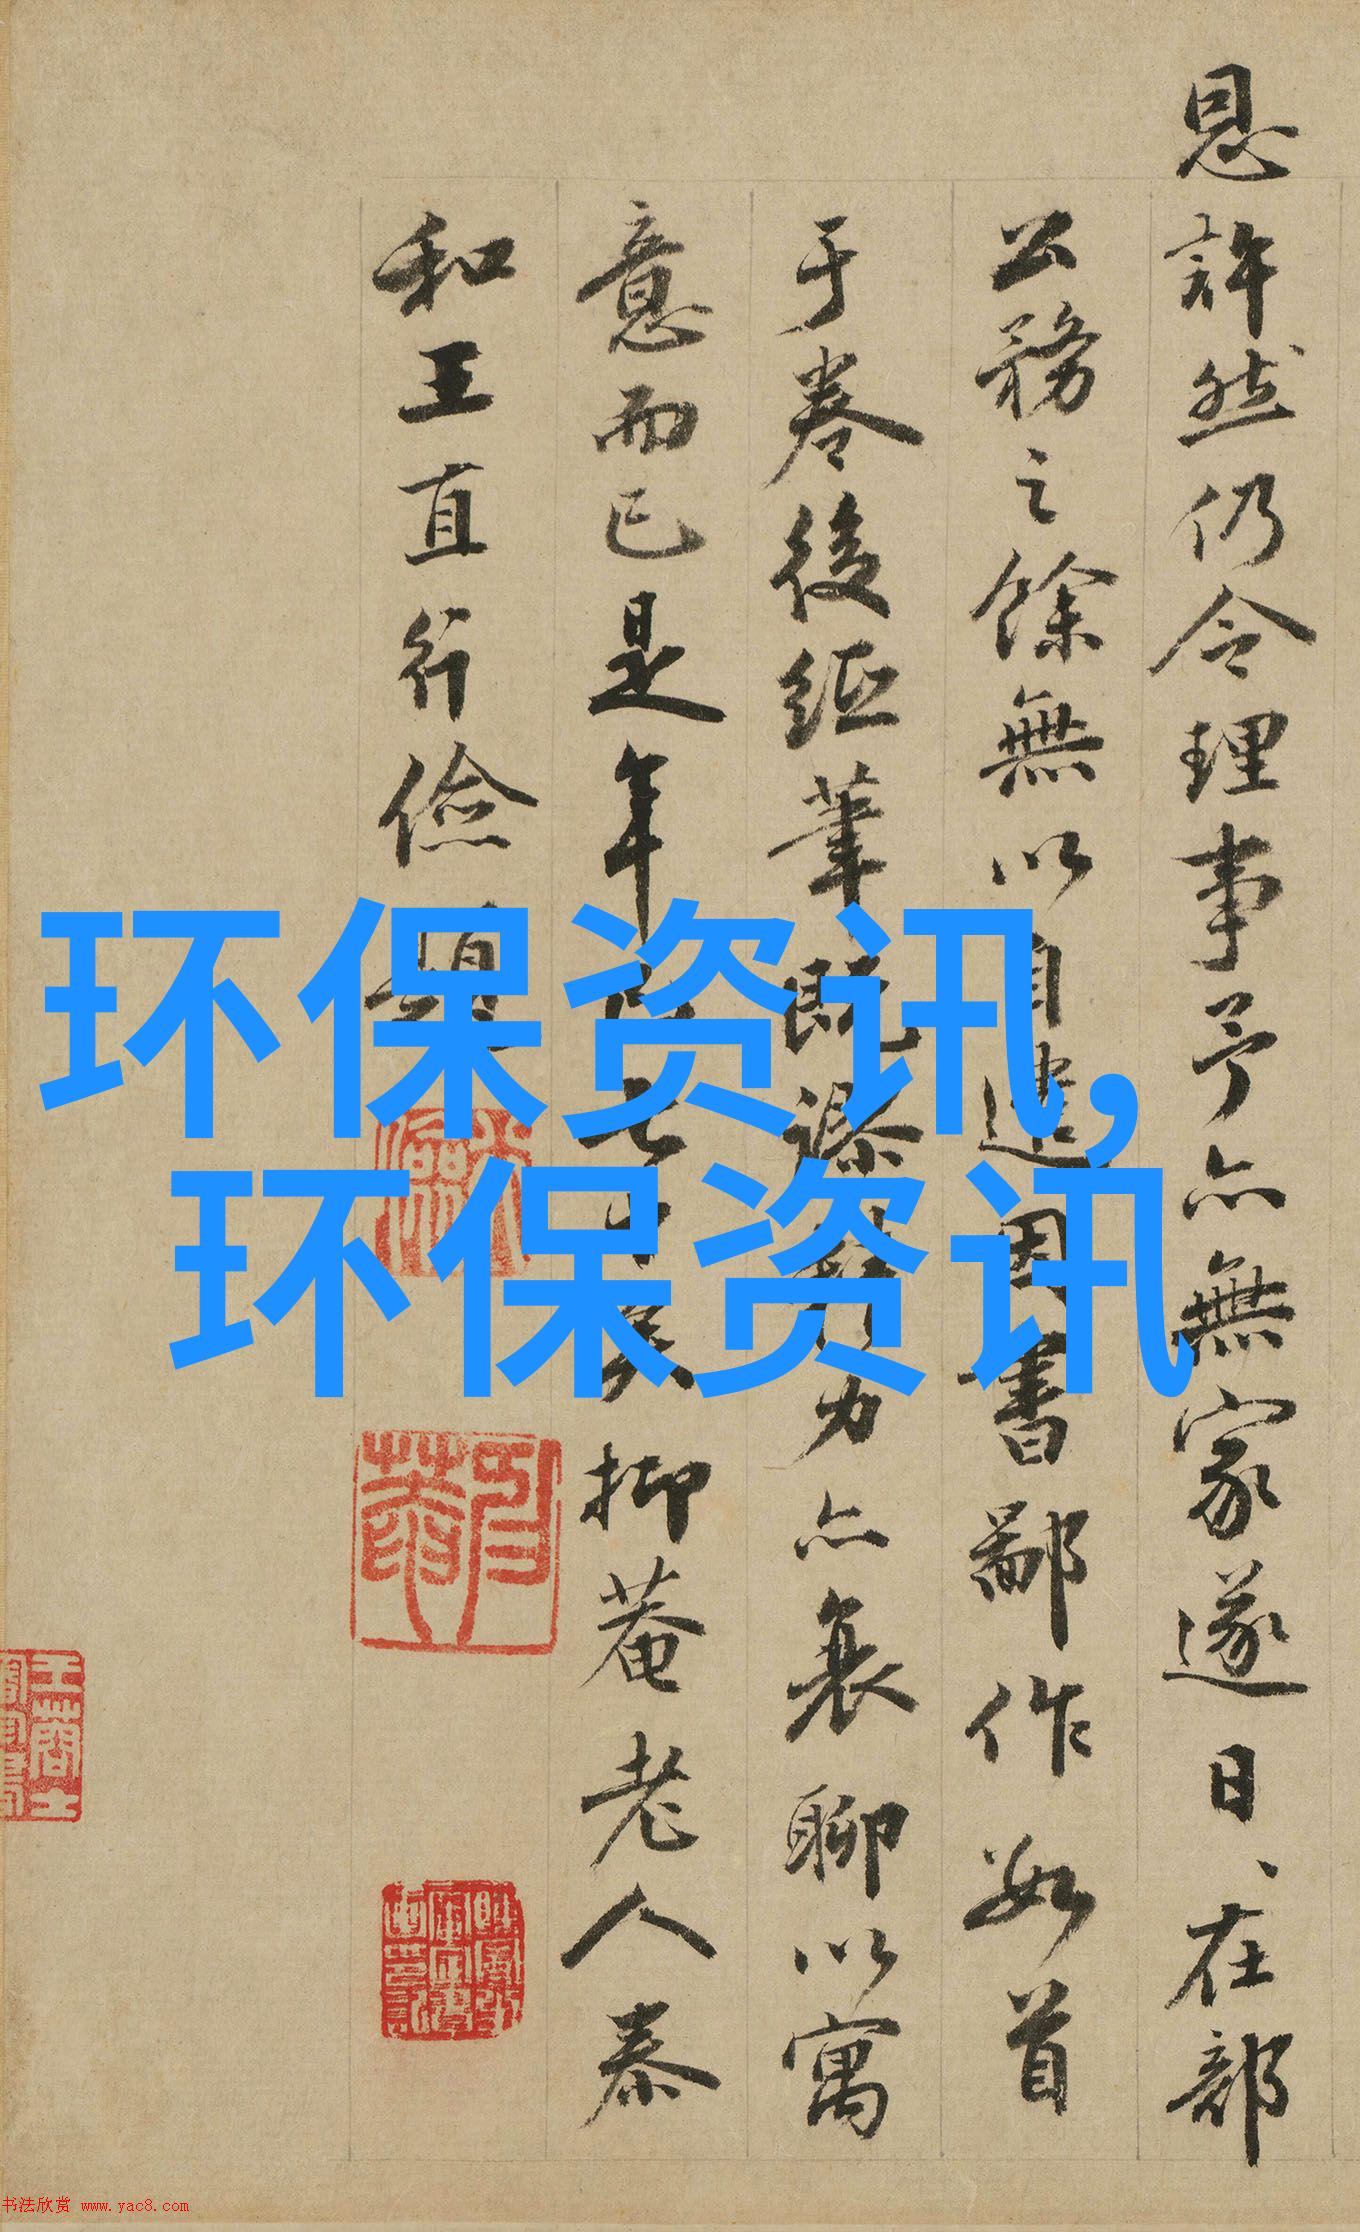 恩許然仍令理事予亦無家遂日、在部
公務之餘無以自遣因書鄙作數首
于卷後紙筆既

力亦衰聊以寓
意而已是年

抑菴老人泰
和王直行儉
环保资讯,
环保资讯
书法欣赏 www.yac8.com